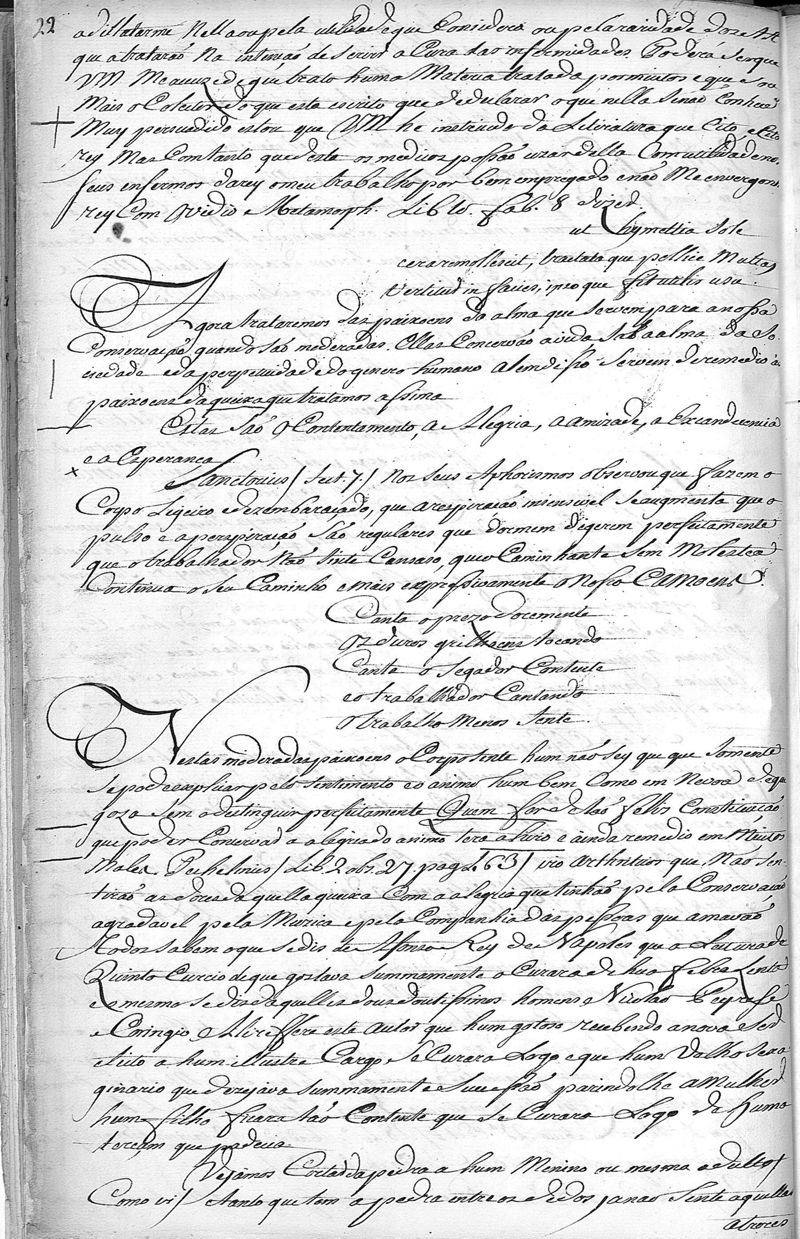 22
a dillatarme nella ou pela utilidade que Considera ou pela raridade dos AA
que a tratarão na intensão de servir a Cura das infermidades. Poderá ser que
VM Me acuze de que trato huma Materia tratada por muitos e que sou
Mais o Coletor do que este escrito que de declarar o que nella Senão Conhece
Muy persuadido estou que VM he instruido da Literatura que Cito e Cita
rey Mas Comtanto que desta os medicos possão uzar della Com utilidade nos
seus enfermos darey o meu trabalho por bem empregado e não Me envergon
rey Com Ovidio Metamorph. Lib. 10. Fab. 8 dizer.
ut Chymettia Sole
cera remollescit, tractata que pollice Multas
Vertitur in facies, ipso que fit utilis usu.
Agora trataremos das paixoens da alma que servem para a nossa
Conservação quando são moderadas. Ellas Concervão a vida da alma da So
ciedade e da perpetuidade do genero humano alem disso servem de remedio as
paixoens da queixa que tratamos assima
Estas São O Contentamento, a Alegria, a amizade, a Excandecencia
e a Esperança
Sanctorius / Sect. 7. / nos seus Aphorismos observou que fazem o
Corpo Ligeiro e dezembaraçado, que a respiração insensivel Se augmenta que o
pulso e a perspiração São regulares que dormem digerem perfeitamente
que o trabalhador não Sinte Cansaso, que o Caminhante Sem Molestea
Continua o seu Caminho e Mais expressivamente o Nosso CAMOENS.
Canta o prezo docemente
Os duros grilhoens tocando
Canta o Segador Contente
e o trabalhador Cantando
O trabalho Menos Sente.
Nestas moderadas paixoens o Corpo sente hum não sey que que Somente
Se pode expliar pelo sentimento e o animo hum bem Como em Nevoa de que
goza Sem o distinguir perfeitamente Quem for de tão feliz Constituição
que poder Conservar a alegria do animo tera alivio e ainda remedio em Muitos
Males. Pechelnus / Lib. 2 obs. 27. pag. 63 / vio arthriticos que Não sen-
tirão as dores daquella queixa Com a alegria que tinhão pela Conservação
agradavel pela Muzica e pela Companhia das pessoas que amavão
Todos Sabem o que Se dis de Afonso Rey de Napoles que a Leitura de
Quinto Curcio de que gostava Summamente o Curara de hua febre Lenta
o mesmo se dira daquelles dous doutissimos homens Nicolao Peyrese
e Coringio Ali reffere este autor que hum gotoso recebendo a nova de ser
eleito a hum illustre Cargo Se Curara Logo e que hum Velho Sexa
ginario que dezejava Summamente Sucessão parindolhe a Mulher
hum filho ficara tão Contente que Se Curara Logo de huma
terçam que padecia
Vejamos Cortar da pedra a hum Menino ou mesmo adulto /
Como vi / e tanto que tem a pedra entre os dedos ja não Sente aquellas
atroces